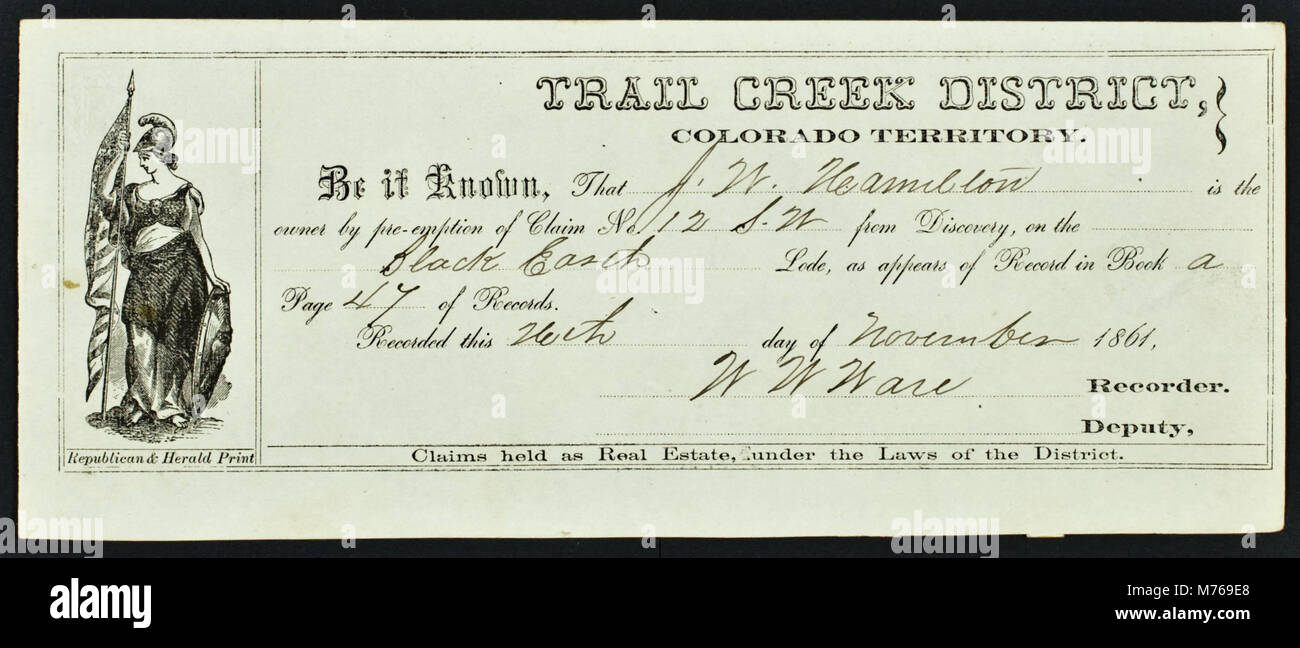 TRAIL CREEK DISTRICT,
COLORADO TERRITORY.
Be it Known, That J. W. Hamilton is the
owner by pre-emption of Claim No. 12 S. W from Discovery, on the
Black Earth Lode, as appears of Record in Book a
Page 47 of Records.
Recorded this day of November 1861,
W W Ware Recorder.
Deputy,
Republican & Herald Print
Claims held as Real Estate, under the Laws of the District.
alamy
Image ID: M769E8
www.alamy.com